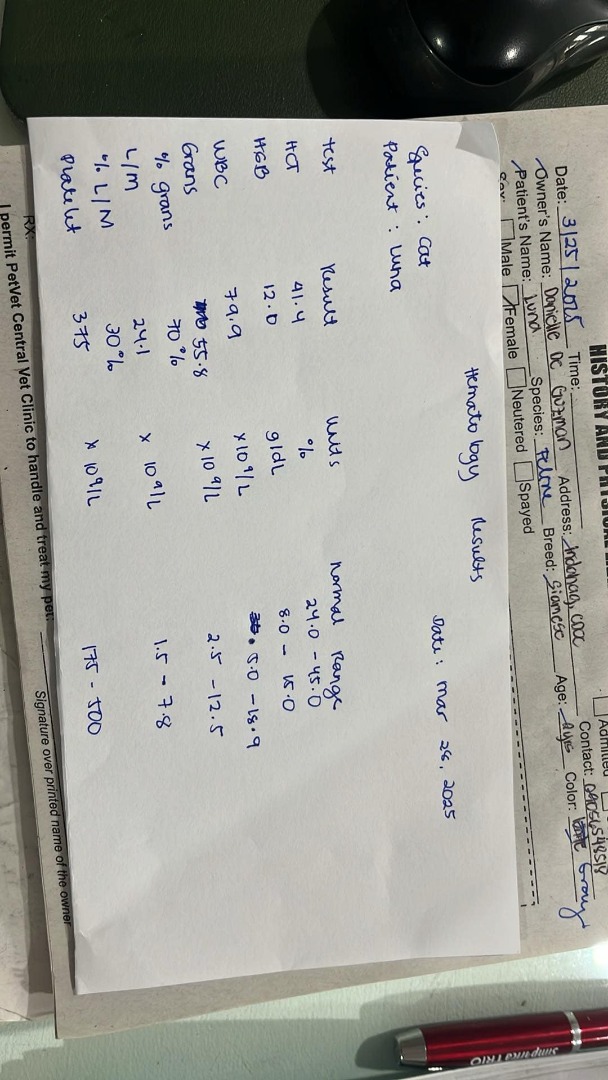 HISTORY AND PHYSICAL
Admitted
Date: 3/25/2025 Time:
Owner's Name: Danielle De Guzman Address: Contact:
Patient's Name: Luna Species: Feline Breed: Siamese Age: Color: Gray
Male Female Neutered Spayed
Hematology Results
Patient : Luna
Species : Cat
Date : Mar 25, 2025
Test Result Units Normal Range
HCT 41.4 % 24.0 - 45.0
HGB 12.0 g/dL 8.0 - 15.0
WBC 79.9 x 10^9/L 5.0 - 18.9
Grans 55.8 x 10^9/L 2.5 - 12.5
% grans 70%
L/M 24.1 x 10^9/L 1.5 - 7.8
% L/M 30%
Platelet 375 x 10^9/L 175 - 500
RX:
Signature over printed name of the owner
I permit PetVet Central Vet Clinic to handle and treat my pet: